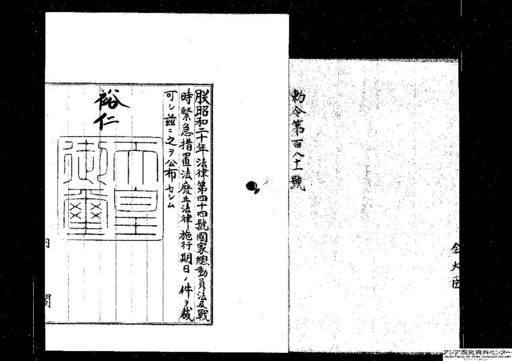 朕昭和二十年法律第四十四號國家總動員法及戰
時緊急措置法廢止法律施行期日ノ件ヲ裁
可シ茲ニ之ヲ公布セシム
裕仁
天皇
御璽
内閣
勅令第百八十一號
アジア歴史資料センター